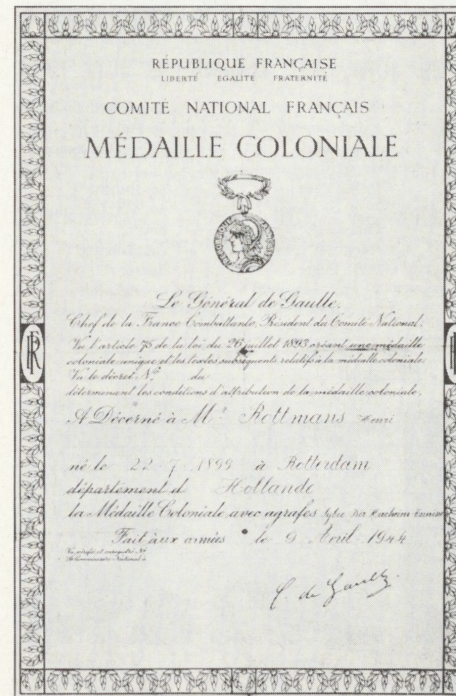 RÉPUBLIQUE FRANÇAISE
LIBERTÉ EGALITÉ FRATERNITÉ
COMITÉ NATIONAL FRANÇAIS
MÉDAILLE COLONIALE
Le Général de Gaulle,
Chef de la France Combattante, Président du Comité National,
Vu l'article 75 de la loi du 26 juillet 1893 créant une médaille
coloniale unique et les textes subséquents relatifs à la médaille coloniale.
Vu le décret N° du
déterminant les conditions d'attribution de la médaille coloniale,
A Décerné à Mr Rottmans Henri
né le 22-7-1899 à Rotterdam
département d Hollande
la Médaille Coloniale avec agrafes Bir Hacheim
Fait aux armées le 9 Avril 1944
C. de Gaulle
RF
RF